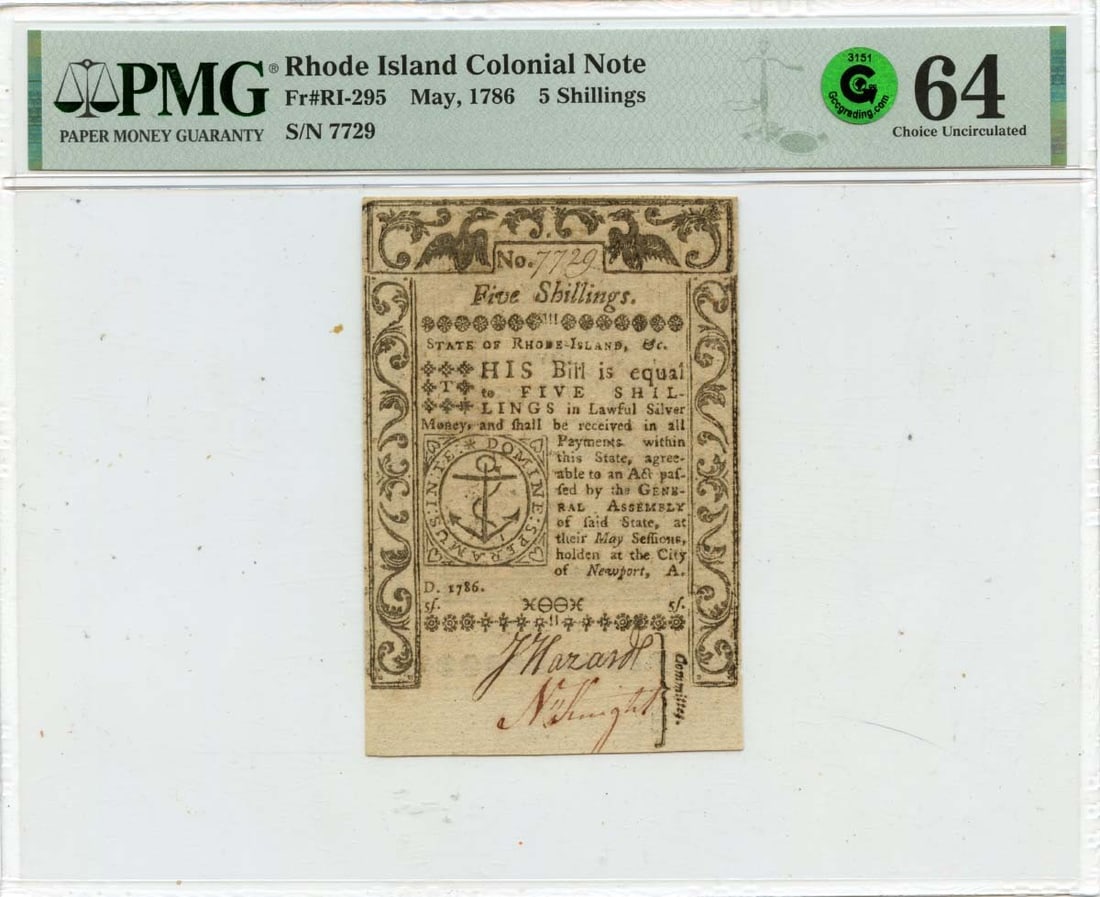 PMG®
PAPER MONEY GUARANTY
Rhode Island Colonial Note
Fr#RI-295 May, 1786 5 Shillings
S/N 7729
3151
G
Gccgrading.com
64
Choice Uncirculated
No. 7729
Five Shillings.
STATE OF RHODE-ISLAND, &c.
THIS Bill is equal
to FIVE SHIL-
LINGS in Lawful Silver
Money, and ſhall be received in all
Payments within
this State, agree-
able to an Act paſ-
ſed by the GENE-
RAL ASSEMBLY
of ſaid State, at
their May Seſſions,
holden at the City
of Newport, A.
D. 1786.
IN : TE : DOMINE : SPERAMUS :
5ſ. 5ſ.
J Hazard
N. Knight
Committee.